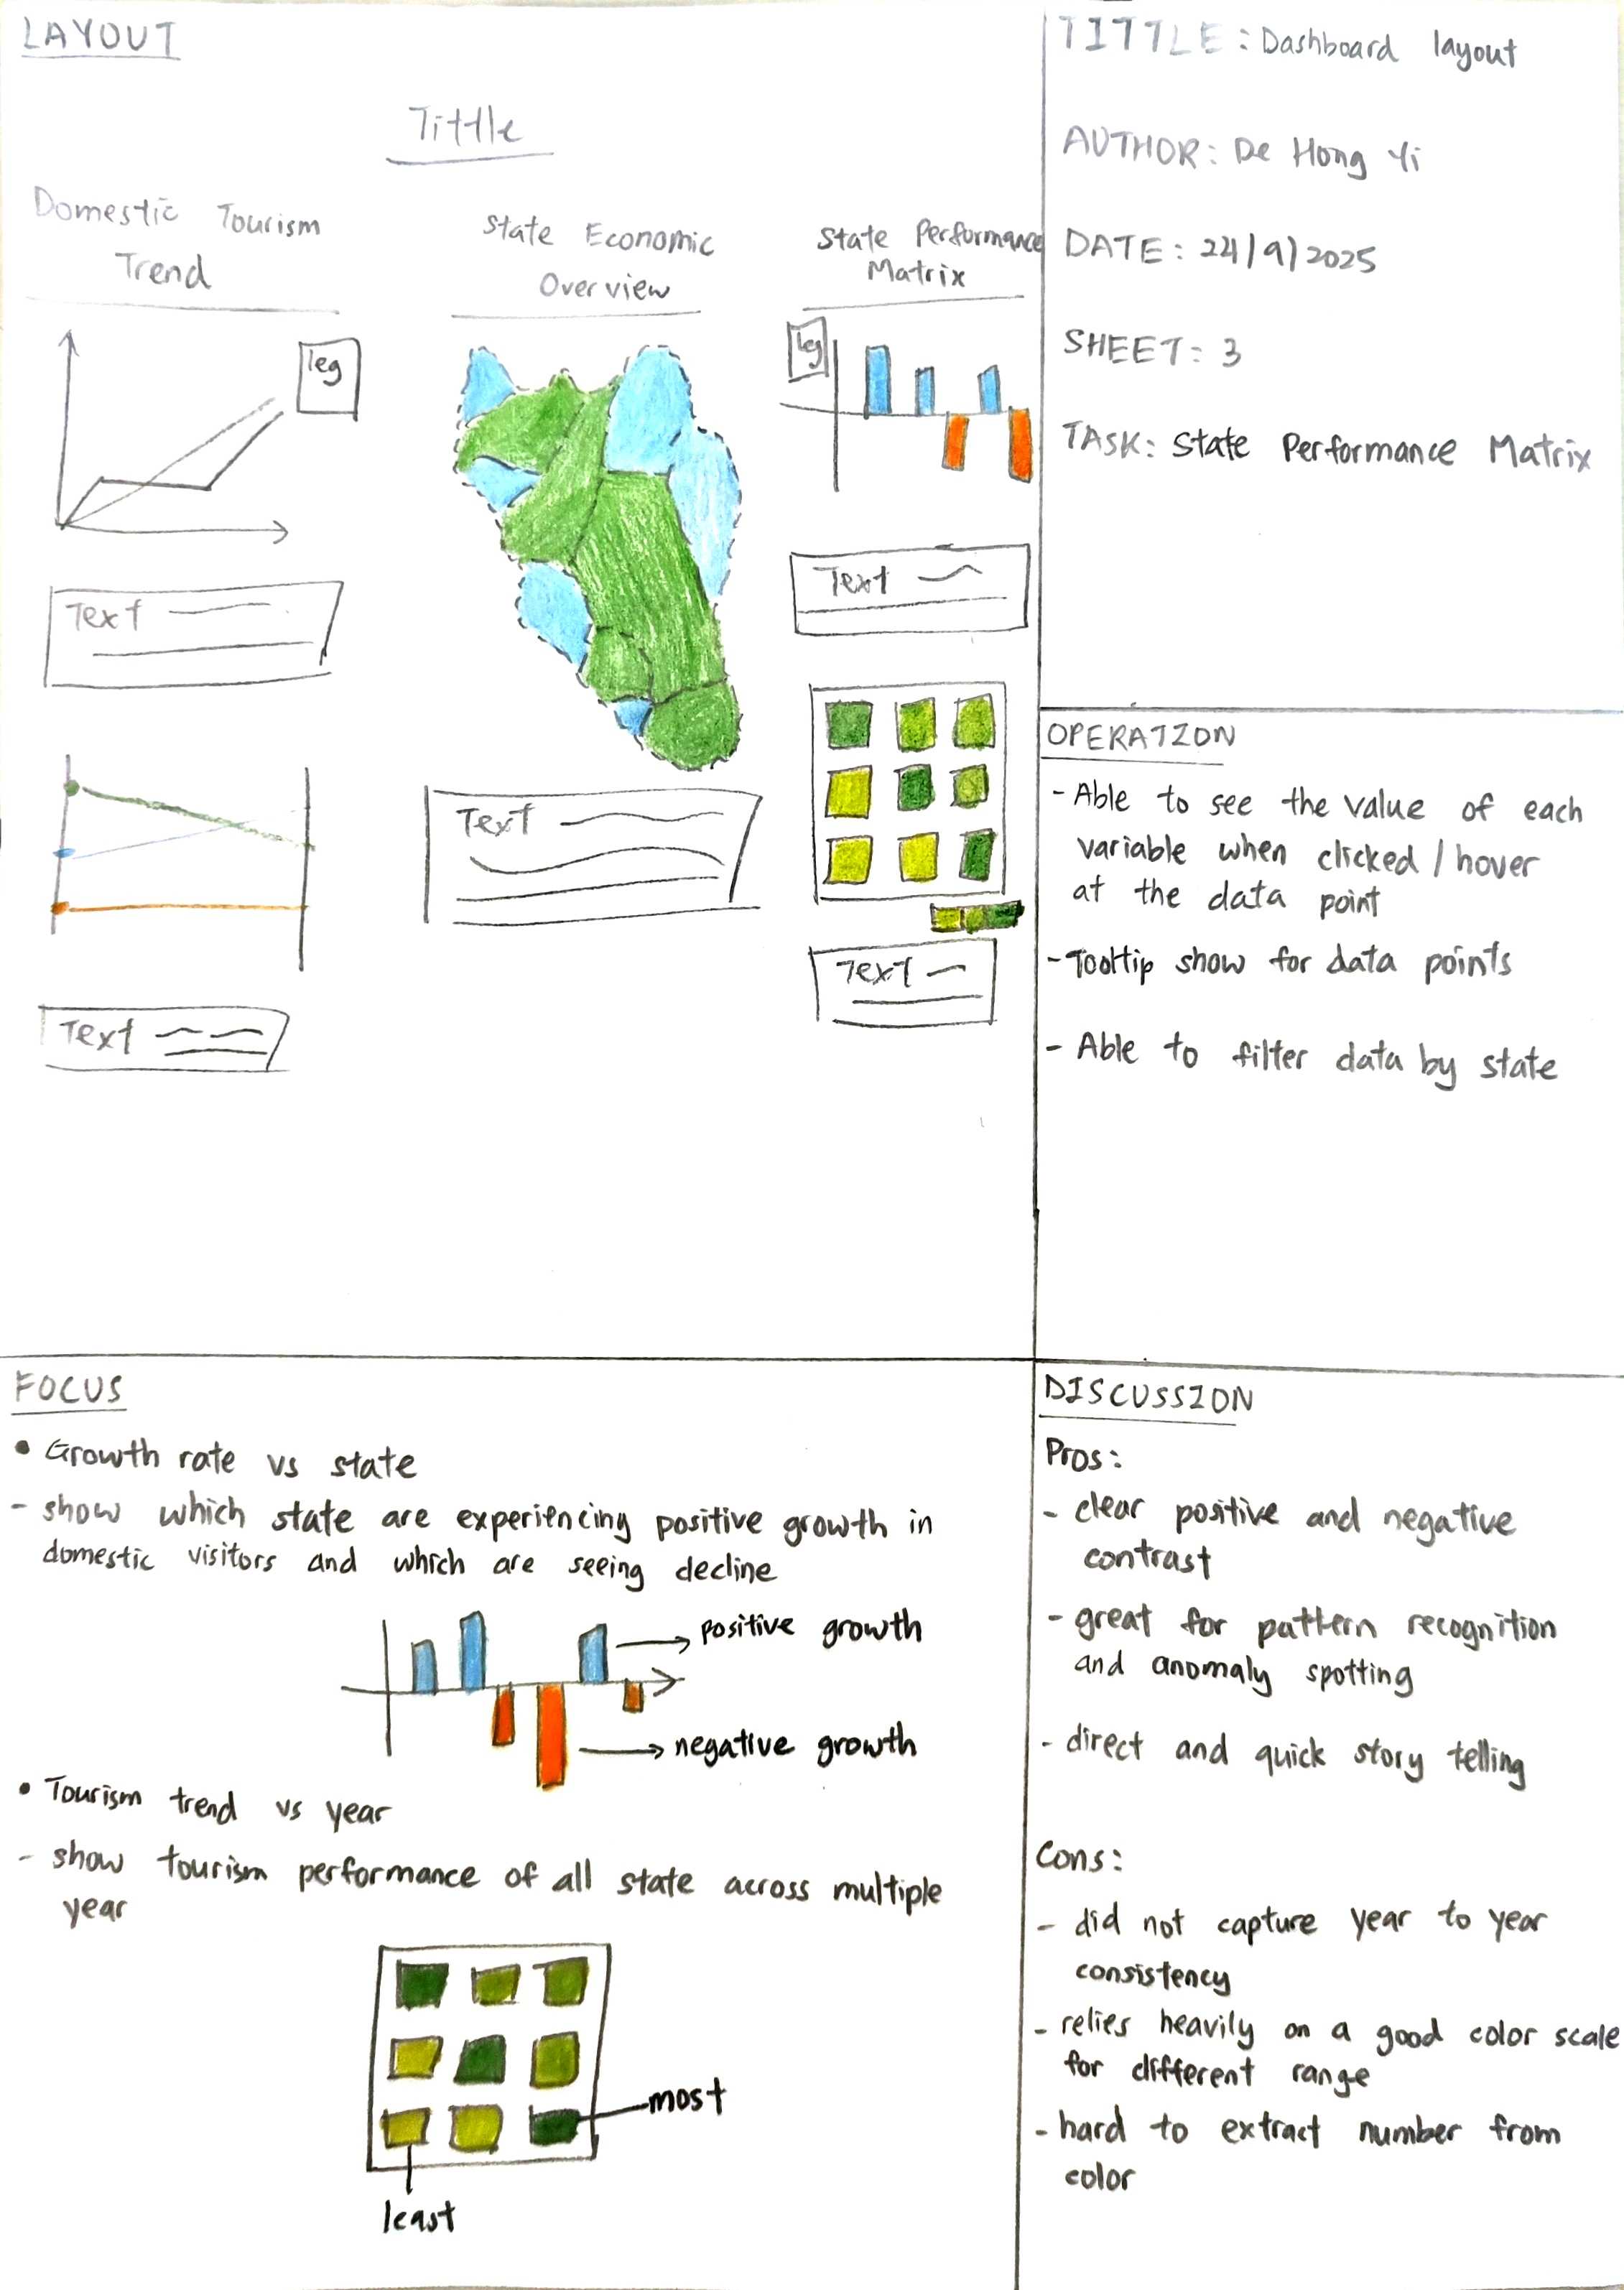 LAYOUT
Tittle
Domestic Tourism
Trend
leg
Text
Text
State Economic
Overview
Text
State Performance
Matrix
leg
Text
Text
TITTLE: Dashboard layout
AUTHOR: De Hong Yi
DATE: 24/9/2025
SHEET: 3
TASK: State Performance Matrix
OPERATION
- Able to see the value of each
variable when clicked / hover
at the data point
- Tooltip show for data points
- Able to filter data by state
FOCUS
• Growth rate vs state
- show which state are experiencing positive growth in
domestic visitors and which are seeing decline
positive growth
negative growth
• Tourism trend vs year
- show tourism performance of all state across multiple
year
most
least
DISCUSSION
Pros:
- clear positive and negative
contrast
- great for pattern recognition
and anomaly spotting
- direct and quick story telling
Cons:
- did not capture year to year
consistency
- relies heavily on a good color scale
for different range
- hard to extract number from
color